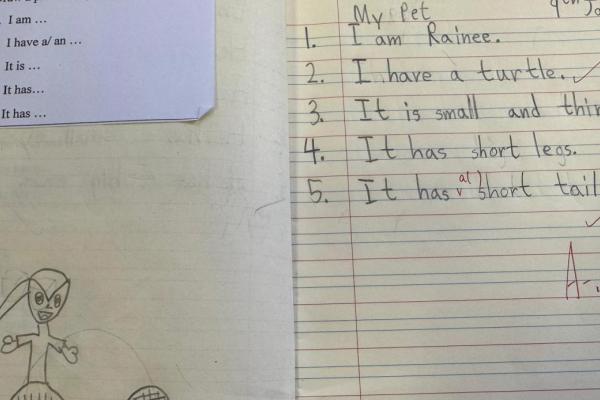 I am ...
I have a/ an ...
It is ...
It has...
It has ...
My Pet
1. I am Rainee.
2. I have a turtle.
3. It is small and
4. It has short legs.
5. It has a short tail
A-